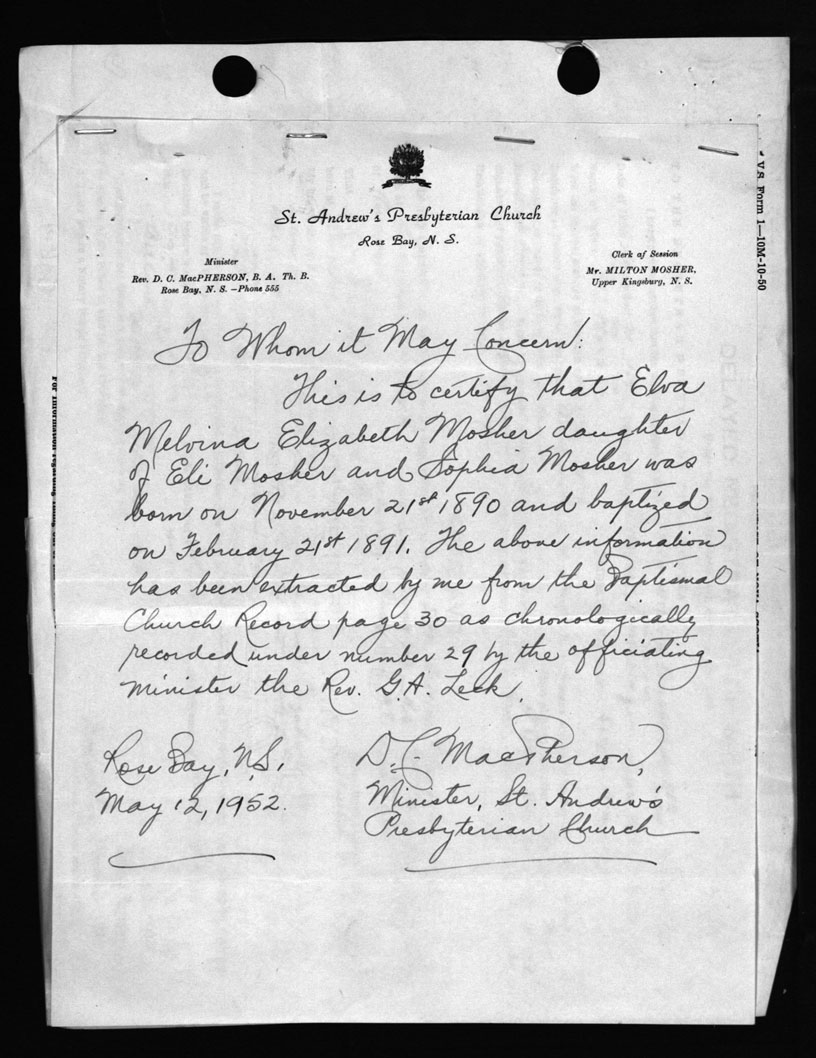 St. Andrew's Presbyterian Church
Rose Bay, N. S.
Minister
Rev. D. C. MacPHERSON, B. A. Th. B.
Rose Bay, N. S. —Phone 555
Clerk of Session
Mr. MILTON MOSHER,
Upper Kingsburg, N. S.
V.S. Form 1—10M-10-50
To Whom it May Concern:
This is to certify that Elva
Melvina Elizabeth Mosher daughter
of Eli Mosher and Sophia Mosher was
born on November 21st 1890 and baptized
on February 21st 1891. The above information
has been extracted by me from the Baptismal
Church Record page 30 as chronologically
recorded under number 29 by the officiating
minister the Rev. G.A. Leck.
Rose Bay, N.S.
May 12, 1952.
D.C. MacPherson,
Minister, St. Andrew's
Presbyterian Church